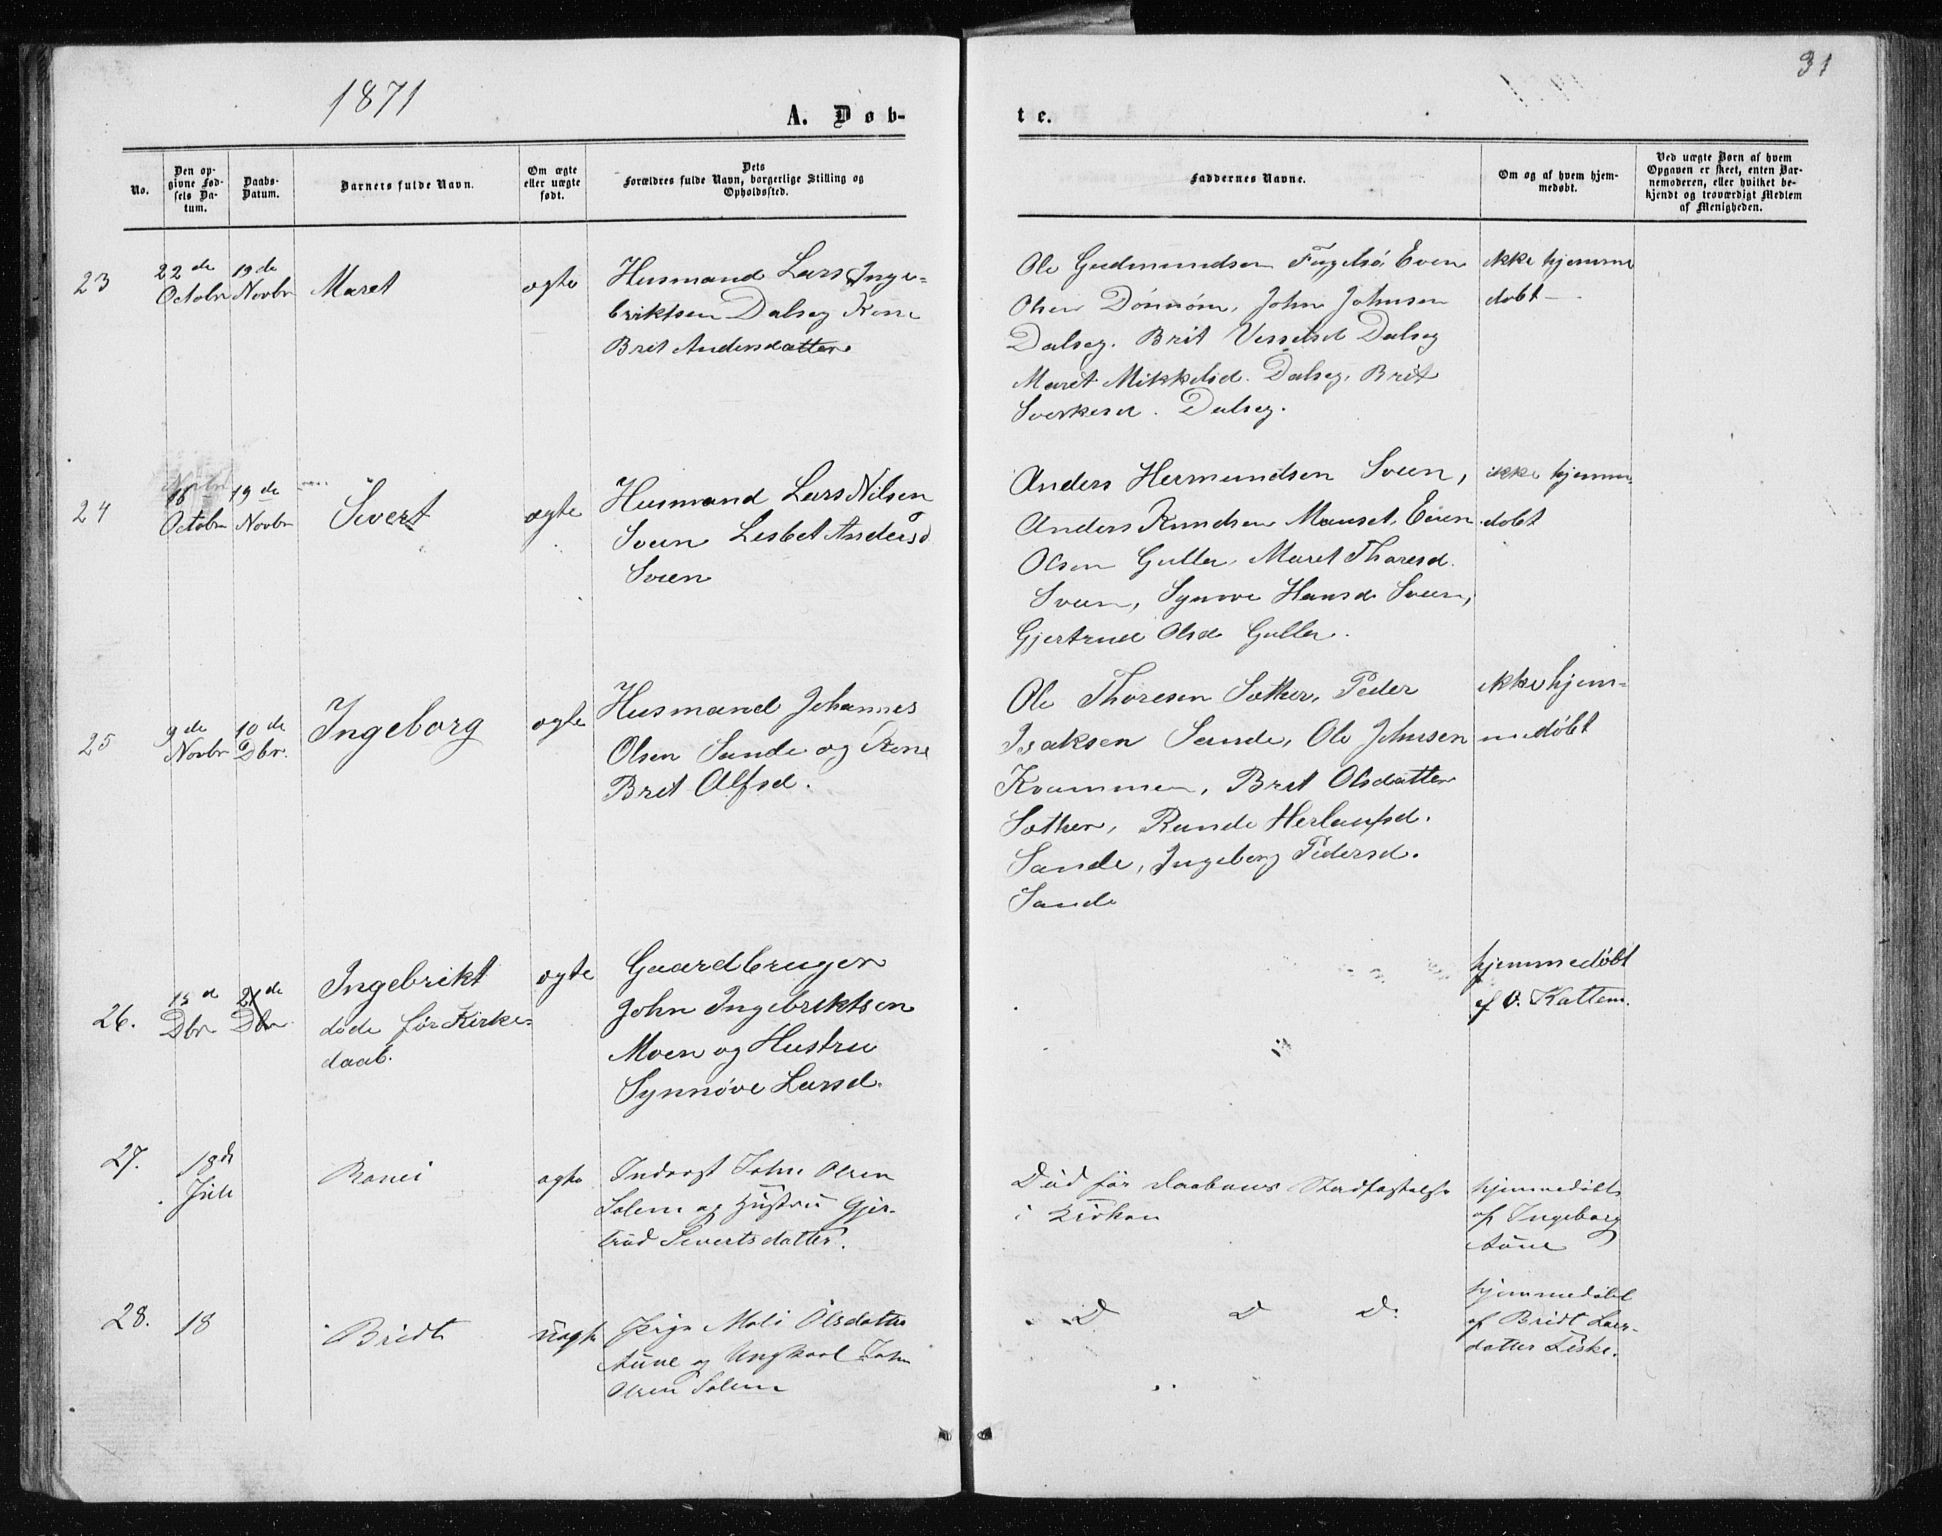 1871
31
A. Døb-
te.
No.
Den op-
givne Fød-
sels Da-
tum.
Daabs-
Datum.
Barnets fulde Navn.
Om ægte
eller uægte
født.
Dets
Forældres fulde Navn, borgerlige Stilling og
Opholdssted.
Faddernes Navne.
Om og af hvem hjem-
medøbt.
Ved uægte Børn af hvem
Opgaven er skeet, enten Bar-
nemoderen, eller hvilket be-
kjendt og troværdigt Medlem
af Menigheden.
23
22de
Octobr
19de
Novbr
Maret
ægte
Husmand Lars Inge-
briktsen Dalseg Kone
Brit Andersdatter
Ole Gudmundsen Fugelsö, Even
Olsen Dönnöm, John Johnsen
Dalseg. Brit Vesselsd Dalseg
Maret Mikkelsd. Dalseg, Brit
Sverkesd. Dalseg.
ikke hjemme
døbt
24
Novbr
18
Octobr
19de
Novbr
Sivert
ægte
Husmand Lars Nilsen
Sveen Lisbet Andersd
Sveen
Anders Hermundsen Sveen,
Anders Knudsen Mauset, Even
Olsen Guller, Maret Thoresd.
Sveen, Synnve Hansd Sveen,
Gjertrud Olsd Guller.
ikke hjemme-
døbt
25
9de
Novbr
10de
Dbr.
Ingeborg
ægte
Husmand Johannes
Olsen Sande og Kone
Brit Alfsd.
Ole Thoresen Sæther, Peder
Isaksen Sande, Ole Johnsen
Kvammen, Brit Olsdatter
Sæther, Rande Herlaufsd.
Sande, Ingeborg Pedersd.
Sande
ikke hjem-
medøbt
26.
15d
Dbr
21de
Dbr
Ingebrikt
døde før Kirke-
daab.
ægte
Gaardbruger
John Ingebriktsen
Moen og Hustru
Synnøve Larsd.
hjemmedøbt
af O. Kattem.
27.
18de
Juli
Ranei
ægte
Inderst John Olsen
Solem og Hustru Gjer-
trud Sivertsdatter.
Død før Daabens Stadfæstelse
i Kirken
hjemmedøbt
af Ingeborg
Aune
28.
18
Bridt
uægte
Pige Mali Olsdatter
Aune og Ungkarl John
Olsen Solem
D D D.
hjemmedøbt
af Bridt Lars-
datter Liske.